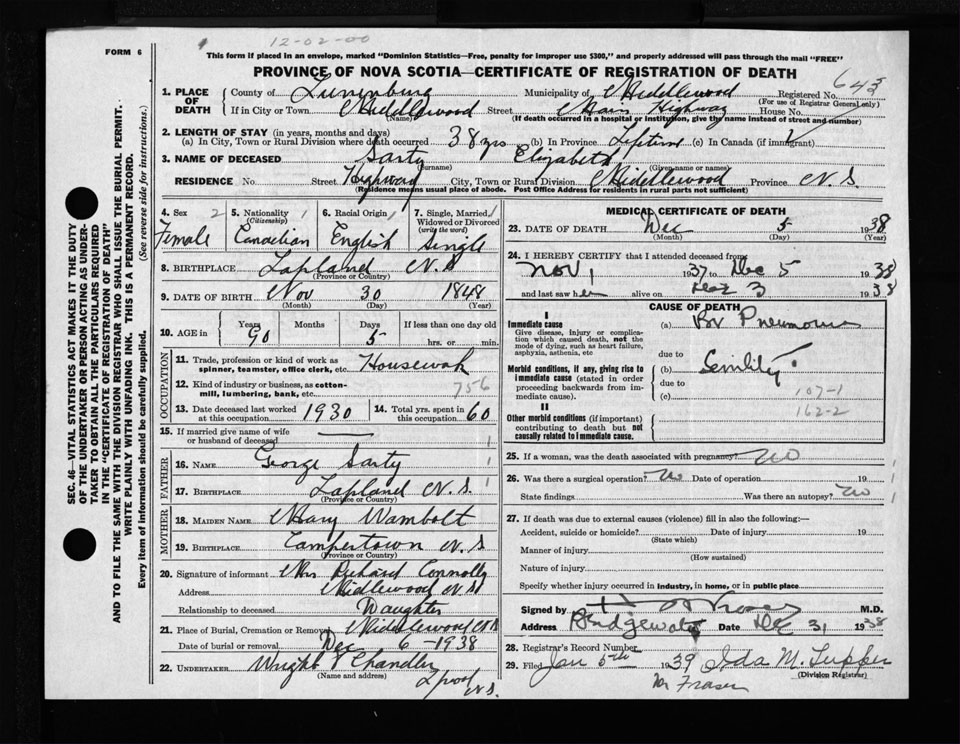 12-02-00
FORM 6
This form if placed in an envelope, marked "Dominion Statistics—Free, penalty for improper use $300," and properly addressed will pass through the mail "FREE"
PROVINCE OF NOVA SCOTIA—CERTIFICATE OF REGISTRATION OF DEATH
643
SEC. 46—VITAL STATISTICS ACT MAKES IT THE DUTY
OF THE UNDERTAKER OR PERSON ACTING AS UNDER-
TAKER TO OBTAIN ALL THE PARTICULARS REQUIRED
IN THE "CERTIFICATE OF REGISTRATION OF DEATH"
AND TO FILE THE SAME WITH THE DIVISION REGISTRAR WHO SHALL ISSUE THE BURIAL PERMIT.
WRITE PLAINLY WITH UNFADING INK. THIS IS A PERMANENT RECORD.
Every item of information should be carefully supplied. (See reverse side for instructions.)
1. PLACE OF DEATH
County of Lunenburg Municipality of Middlewood Registered No.
(For use of Registrar General only)
If in City or Town Middlewood Street Main Highway House No.
(Name) (If death occurred in a hospital or institution, give the name instead of street and number)
2. LENGTH OF STAY (in years, months and days)
(a) In City, Town or Rural Division where death occurred 38 yrs (b) In Province Lifetime (c) In Canada (if immigrant)
3. NAME OF DECEASED Sarty Elizabeth
(Surname) (Given name or names)
RESIDENCE No. Street Highway City, Town or Rural Division Middlewood Province N.S.
(Residence means usual place of abode. Post Office Address for residents in rural parts not sufficient)
4. Sex 2 Female
5. Nationality 1 (Citizenship) Canadian
6. Racial Origin 1 English
7. Single, Married, Widowed or Divorced (write the word) 1 Single
8. BIRTHPLACE Lapland N.S
(Province or Country)
9. DATE OF BIRTH Nov 30 1848
(Month) (Day) (Year)
10. AGE in Years Months Days If less than one day old
90 5 hrs. or min.
OCCUPATION
11. Trade, profession or kind of work as spinner, teamster, office clerk, etc. Housewok
12. Kind of industry or business, as cotton-mill, lumbering, bank, etc. 756
13. Date deceased last worked at this occupation 1930 14. Total yrs. spent in this occupation 60
15. If married give name of wife or husband of deceased
FATHER
16. NAME George Sarty
17. BIRTHPLACE Lapland N.S.
(Province or Country)
MOTHER
18. MAIDEN NAME Mary Wambolt
19. BIRTHPLACE Campertown N.S
(Province or Country)
20. Signature of informant Mrs Richard Connolly
Address Middlewood NS
Relationship to deceased Daughter
21. Place of Burial, Cremation or Removal Middlewood NS
Date of burial or removal Dec 6 - 1938
22. UNDERTAKER Wright & Chandler
(Name and address)
N.S.
MEDICAL CERTIFICATE OF DEATH
23. DATE OF DEATH Dec 5 1938
(Month) (Day) (Year)
24. I HEREBY CERTIFY that I attended deceased from
Nov 1 1937 to Dec 5 1938
and last saw her alive on Dec 3 1938
CAUSE OF DEATH
I
Immediate cause
Give disease, injury or complication which caused death, not the mode of dying, such as heart failure, asphyxia, asthenia, etc
(a) Br Pneumonia
due to
Morbid conditions, if any, giving rise to immediate cause (stated in order proceeding backwards from immediate cause).
(b) Senility
due to
(c) 107-1
162-2
II
Other morbid conditions (if important) contributing to death but not causally related to immediate cause.
25. If a woman, was the death associated with pregnancy? No
26. Was there a surgical operation? No Date of operation 19
State findings Was there an autopsy? No
27. If death was due to external causes (violence) fill in also the following:—
Accident, suicide or homicide? Date of injury 19
(State which)
Manner of injury
(How sustained)
Nature of injury
Specify whether injury occurred in industry, in home, or in public place
Signed by M.D.
Address Bridgewater Date Dec 31 1938
28. Registrar's Record Number
29. Filed Jan 5th 1939 Ida M. Tupper
(Division Registrar)
Fraser